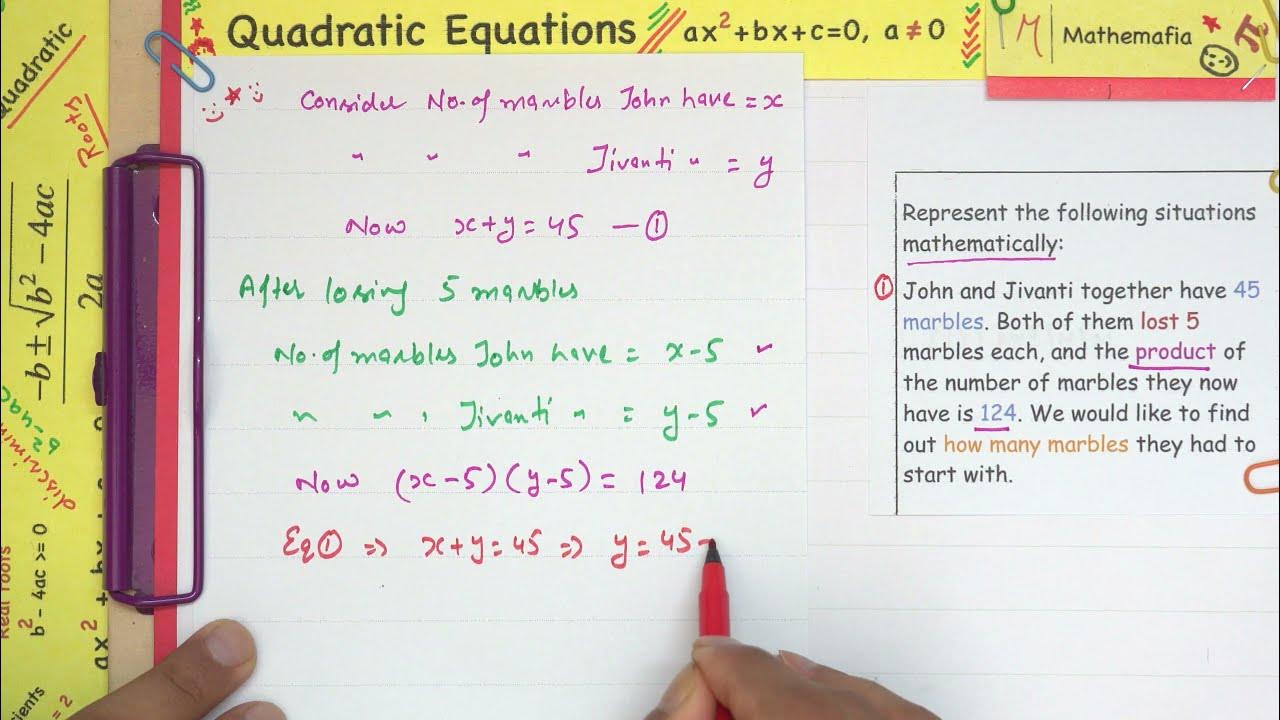 Quadratic Equations ax²+bx+c=0, a≠0
M Mathemafia
Quadratic
Roots
-b±√b²-4ac
2a
b²-4ac
discrimin
Real roots
b²-4ac >= 0
ax² + bx
= 2
Consider No. of marbles John have = x
" " " Jivanti " = y
Now x+y=45 —①
After losing 5 marbles
No. of marbles John have = x-5 ✓
" " " Jivanti " = y-5 ✓
Now (x-5)(y-5)=124
Eq① ⇒ x+y=45 ⇒ y=45-
Represent the following situations
mathematically:
① John and Jivanti together have 45
marbles. Both of them lost 5
marbles each, and the product of
the number of marbles they now
have is 124. We would like to find
out how many marbles they had to
start with.